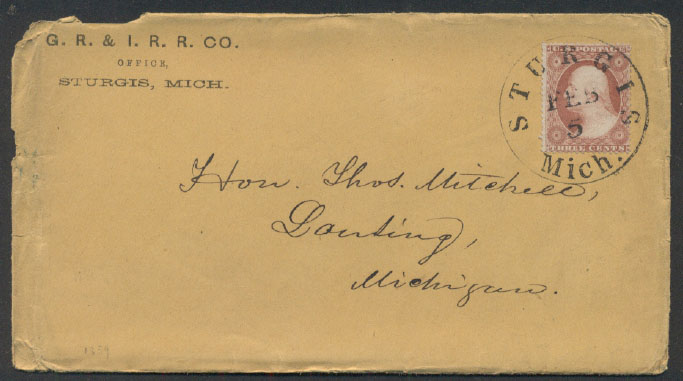 G. R. & I. R. R. CO.
OFFICE,
STURGIS, MICH.
U.S. POSTAGE
THREE CENTS
STURGIS
FEB
5
Mich.
Hon. Thos. Mitchell,
Lansing,
Michigan.